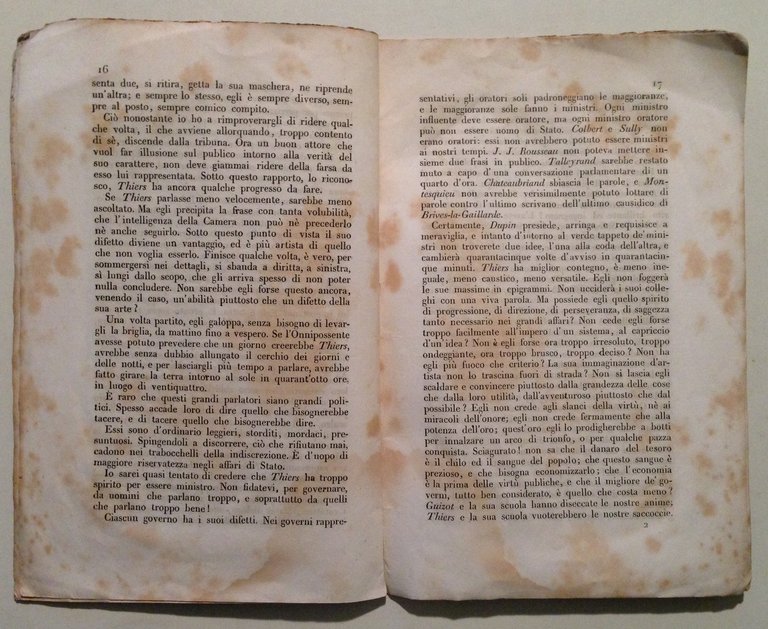 16
senta due, si ritira, getta la sua maschera, ne riprende
un'altra; e sempre lo stesso, egli è sempre diverso, sem-
pre al posto, sempre comico compito.
Ciò nonostante io ho a rimproverargli di ridere qual-
che volta, il che avviene allorquando, troppo contento
di sè, discende dalla tribuna. Ora un buon attore che
vuol far illusione sul publico intorno alla verità del
suo carattere, non deve giammai ridere della farsa da
esso lui rappresentata. Sotto questo rapporto, lo ricono-
sco, Thiers ha ancora qualche progresso da fare.
Se Thiers parlasse meno velocemente, sarebbe meno
ascoltato. Ma egli precipita la frase con tanta volubilità,
che l'intelligenza della Camera non può nè precederlo
nè anche seguirlo. Sotto questo punto di vista il suo
difetto diviene un vantaggio, ed è più artista di quello
che non voglia esserlo. Finisce qualche volta, è vero, per
sommergersi nei dettagli, si sbanda a diritta, a sinistra,
sì lungi dallo scopo, che gli arriva spesso di non poter
nulla concludere. Non sarebbe egli forse questo ancora,
venendo il caso, un'abilità piuttosto che un difetto della
sua arte?
Una volta partito, egli galoppa, senza bisogno di levar-
gli la briglia, da mattino fino a vespero. Se l'Onnipossente
avesse potuto prevedere che un giorno creerebbe Thiers,
avrebbe senza dubbio allungato il cerchio dei giorni e
delle notti, e per lasciargli più tempo a parlare, avrebbe
fatto girare la terra intorno al sole in quarant'otto ore.
in luogo di ventiquattro.
È raro che questi grandi parlatori siano grandi poli-
tici. Spesso accade loro di dire quello che bisognerebbe
tacere, e di tacere quello che bisognerebbe dire.
Essi sono d'ordinario leggieri, storditi, mordaci, pre-
suntuosi. Spingendoli a discorrere, ciò che rifiutano mai,
cadono nei trabocchelli della indiscrezione. È d'uopo di
maggiore riservatezza negli affari di Stato.
Io sarei quasi tentato di credere che Thiers ha troppo
spirito per essere ministro. Non fidatevi, per governare,
da uomini che parlano troppo, e soprattutto da quelli
che parlano troppo bene!
Ciascun governo ha i suoi difetti. Nei governi rappre-
17
sentativi, gli oratori soli padroneggiano le maggioranze,
e le maggioranze sole fanno i ministri. Ogni ministro
influente deve essere oratore, ma ogni ministro oratore
può non essere uomo di Stato. Colbert e Sully non
erano oratori: essi non avrebbero potuto essere ministri
ai nostri tempi. J. J. Rousseau non poteva mettere in-
sieme due frasi in publico. Talleyrand sarebbe restato
muto a capo d'una conversazione parlamentare di un
quarto d'ora. Chateaubriand sbiascia le parole, e Mon-
tesquieu non avrebbe verisimilmente potuto lottare di
parole contro l'ultimo scrivano dell'ultimo causidico di
Brives-la-Gaillarde.
Certamente, Dupin presiede, arringa e requisisce a
meraviglia, e intanto d'intorno al verde tappeto de' mini-
stri non troverete due idee, l'una alla coda dell'altra, e
cambierà quarantacinque volte d'avviso in quarantacin-
que minuti. Thiers ha miglior contegno, è meno ine-
guale, meno caustico, meno versatile. Egli non foggerà
le sue massime in epigrammi. Non ucciderà i suoi colle-
ghi con una viva parola. Ma possiede egli quello spirito
di progressione, di direzione, di perseveranza, di saggezza
tanto necessario nei grandi affari? Non cede egli forse
troppo facilmente all'impero d'un sistema, al capriccio
d'un'idea? Non è egli forse ora troppo irresoluto, troppo
ondeggiante, ora troppo brusco, troppo deciso? Non ha
egli più fuoco che criterio? La sua immaginazione d'ar-
tista non lo trascina fuori di strada? Non si lascia egli
scaldare e convincere piuttosto dalla grandezza delle cose
che dalla loro utilità, dall'avventuroso piuttosto che dal
possibile? Egli non crede agli slanci della virtù, nè ai
miracoli dell'onore; egli non crede fermamente che alla
potenza dell'oro; quest'oro egli lo prodigherebbe a botti
per innalzare un arco di trionfo, o per qualche pazza
conquista. Sciagurato! non sa che il danaro del tesoro
è il chilo ed il sangue del popolo; che questo sangue è
prezioso, e che bisogna economizzarlo; che l'economia
è la prima delle virtù publiche, e che il migliore de' go-
verni, tutto ben considerato, è quello che costa meno?
Guizot e la sua scuola hanno diseccate le nostre anime;
Thiers e la sua scuola vuoterebbero le nostre saccoccie.
2